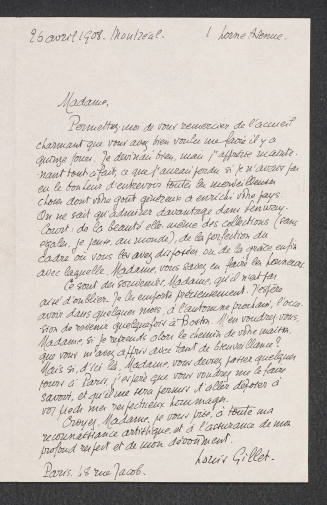 26 avril 1908. Montréal. 1 Lorne Avenue.
Madame,
Permettez-moi de vous remercier de l'accueil
charmant que vous avez bien voulu me faire il y a
quinze jours. Je devinais bien, mais j'apprécie mainte-
nant tout à fait, ce que j'aurais perdu si je n'avais pas
eu le bonheur d'entrevoir toutes les merveilleuses
choses dont votre goût généreux a enrichi votre pays.
On ne sait qu'admirer davantage dans Fenway-
Court : de la beauté elle-même des collections (sans
égales, je pense, au monde), de la perfection du
cadre où vous les avez disposées ou de la grâce enfin
avec laquelle, Madame, vous savez en faire les honneurs.
Ce sont des souvenirs, Madame, qu'il n'est pas
aisé d'oublier. Je les emporte précieusement. J'espère
avoir dans quelques mois, à l'automne prochain, l'occa-
sion de revenir quelquefois à Boston. M'en voudrez-vous,
Madame, si je reprends alors le chemin de votre maison,
que vous m'avez appris avec tant de bienveillance?
Mais si, d'ici là, Madame, vous deviez passer quelques
jours à Paris, j'espère que vous voudrez me le faire
savoir, et qu'il me sera permis d'aller déposer à
vos pieds mes respectueux hommages.
Croyez, Madame, je vous prie, à toute ma
reconnaissance artistique, et à l'assurance de mon
profond respect et de mon dévouement.
Louis Gillet.
Paris. 48 rue Jacob.